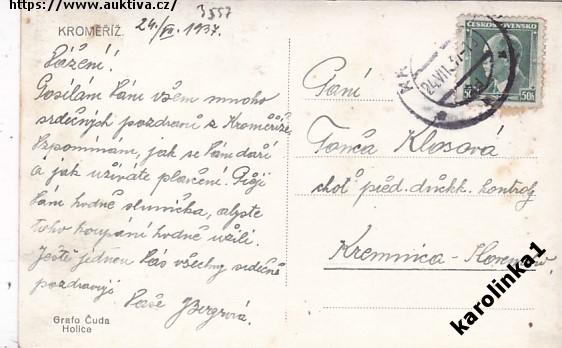 https://www.auktiva.cz/
3557
KROMĚŘÍŽ. 24./VII. 1937.
Vážení!
Posílám Vám všem mnoho
srdečných pozdravů z Kroměříže.
Vzpomínám, jak se Vám daří
a jak užíváte plavčení. Přeji
Vám hodně sluníčka, abyste
toho koupání hodně užili.
Ještě jednou Vás všechny srdečně
pozdravuji
Vaše Bergrová.
Grafo Čuda
Holice
ČESKOSLOVENSKO
50 50h
24.VII.37
Paní
Tonča Klosová
choť před. důchk. kontrol.
Kremnica - Slovensko
karolinka1